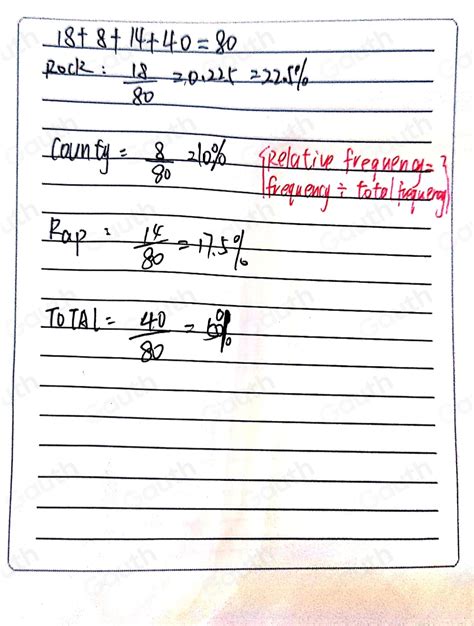 18+8+14+40=80
Rock: 18/80 =0.225 =22.5%
County= 8/80 =10%
{Relative frequency=}
frequency ÷ total frequency
Rap: 14/80 =17.5%
TOTAL= 40/80 = 50%